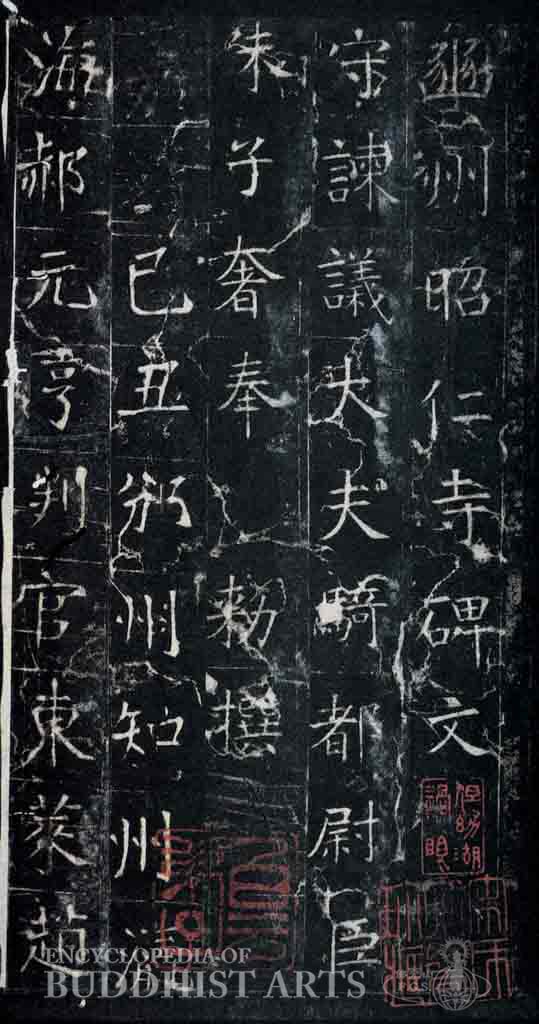 豳州昭仁寺碑文
守諫議大夫騎都尉臣
朱子奢奉 勅撰
己丑邠州知州
海郝元亨判官東萊趙
但幼湖
過眼
ENCYCLOPEDIA OF
BUDDHIST ARTS